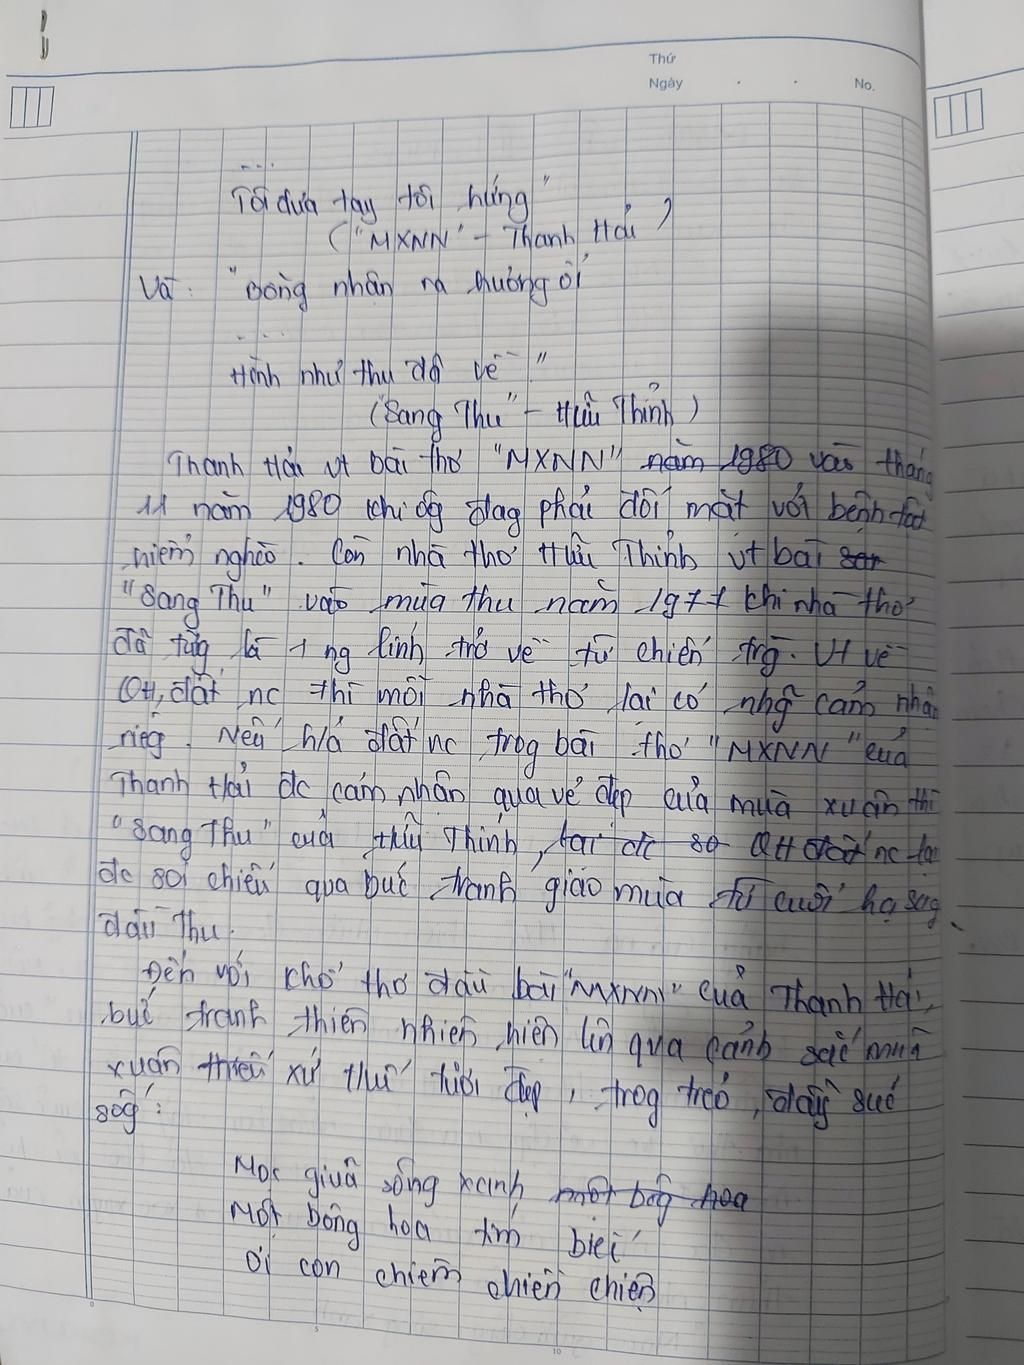 Thứ
Ngày . . No.
...
Tôi đưa tay tôi hứng"
("MXNN" - Thanh Hải)
Và: "Bỗng nhận ra hương ổi
...
Hình như thu đã về"
("Sang Thu" - Hữu Thỉnh)
Thanh Hải vt bài thơ "MXNN" năm 1980 vào tháng
11 năm 1980 khi ôg đag phải đối mặt với bệnh tật
hiểm nghèo. Còn nhà thơ Hữu Thỉnh vt bài
"Sang Thu" vào mùa thu năm 1977 khi nhà thơ
đã từg là 1 ng lính trở về từ chiến trg. Vt về
QH, đất nc thì mỗi nhà thơ lại có nhg cảm nhận
riêg. Nếu h/á đất nc trog bài thơ "MXNN" của
Thanh Hải đc cảm nhận qua vẻ đẹp của mùa xuân thì
"Sang Thu" của Hữu Thỉnh, lại đc so QH đất nc lại
đc soi chiếu qua bức tranh giao mùa từ cuối hạ sag
đầu thu.
Đến với khổ thơ đầu bài "MXNN" của Thanh Hải,
bức tranh thiên nhiên hiện lên qua cảnh sắc mùa
xuân thiếu xứ Huế tươi đẹp, trog trẻo, đầy sức
sốg:
Mọc giữa sông xanh một bôg hoa
Một bông hoa tím biếc
Ơi con chiêm chiền chiện